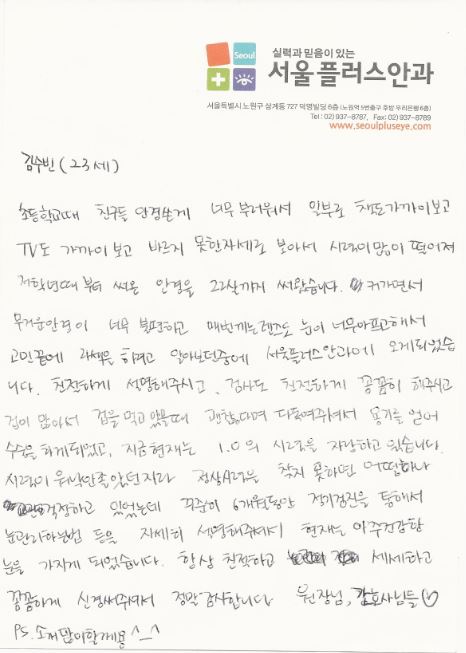 Seoul
실력과 믿음이 있는
서울플러스안과
서울특별시 노원구 상계동 727 덕영빌딩 6층 (노원역 5번출구 후방 우리은행 6층)
Tel : 02) 937–8787, Fax: 02) 937–8789
www.seoulpluseye.com
김수빈 (23세)
초등학교때 친구들 안경쓴게 너무 부러워서 일부로 책도 가까이보고
TV도 가까이 보고 바르지 못한자세로 보아서 시력이 많이 떨어져
저학년때 부터 써온 안경을 22살까지 써왔습니다. 커가면서
무거운안경이 너무 불편하고 매번끼는렌즈도 눈이 너무아프고해서
고민끝에 라섹을 하려고 알아보던중에 서울플러스안과에 오게되었습
니다. 친절하게 설명해주시고, 검사도 친절하게 꼼꼼히 해주시고
겁이 많아서 겁을 먹고 있을때 괜찮다며 다독여주셔서 용기를 얻어
수술을 하게되었고, 지금현재는 1.0의 시력을 자랑하고 있습니다.
시력이 워낙안좋았던지라 정상시력을 찾지 못하면 어떡하나
걱정하고 있었는데 꾸준히 6개월동안 정기검진을 통해서
눈관리하는법 등을 자세히 설명해주셔서 현재는 아주건강한
눈을 가지게 되었습니다. 항상 친절하고 세세하고
꼼꼼하게 신경써주셔서 정말감사합니다 원장님, 간호사님들♡
PS. 소개많이할게용 ^_^